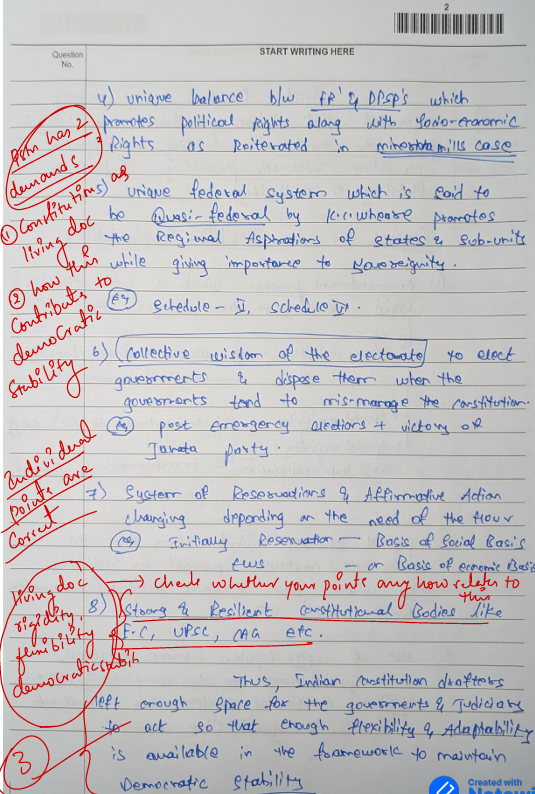 2
Question No.
START WRITING HERE
4) unique balance b/w FR's & DPSP's which
promotes political Rights along with socio-economic
Rights as Reiterated in minerva mills case
5) unique federal system which is said to
be Quasi-federal by K.C. wheare promotes
the Regional Aspirations of states & sub-units
while giving importance to sovereignity.
eg schedule - V, schedule VI.
6) collective wisdom of the electorate to elect
governments & dispose them when the
governments tend to mis-manage the constitution.
eg post emergency elections + victory of
Janata party.
7) System of Reservations & Affirmative Action
changing depending on the need of the Hour
eg Initially Reservation - Basis of Social Basis
EWS - on Basis of economic Basis
8) Strong & Resilient constitutional Bodies like
E.C, UPSC, CAG etc.
Thus, Indian constitution drafters
left enough space for the governments & Judiciary
to act so that enough flexibility & Adaptability
is available in the framework to maintain
Democratic stability
has 2
demands
① Constitution as
living doc
&
② how this
contributes to
democratic
stability
Individual
points are
correct
living doc
rigidity
democratic stabili
→ check whether your points any how relates to
this
3
Created with